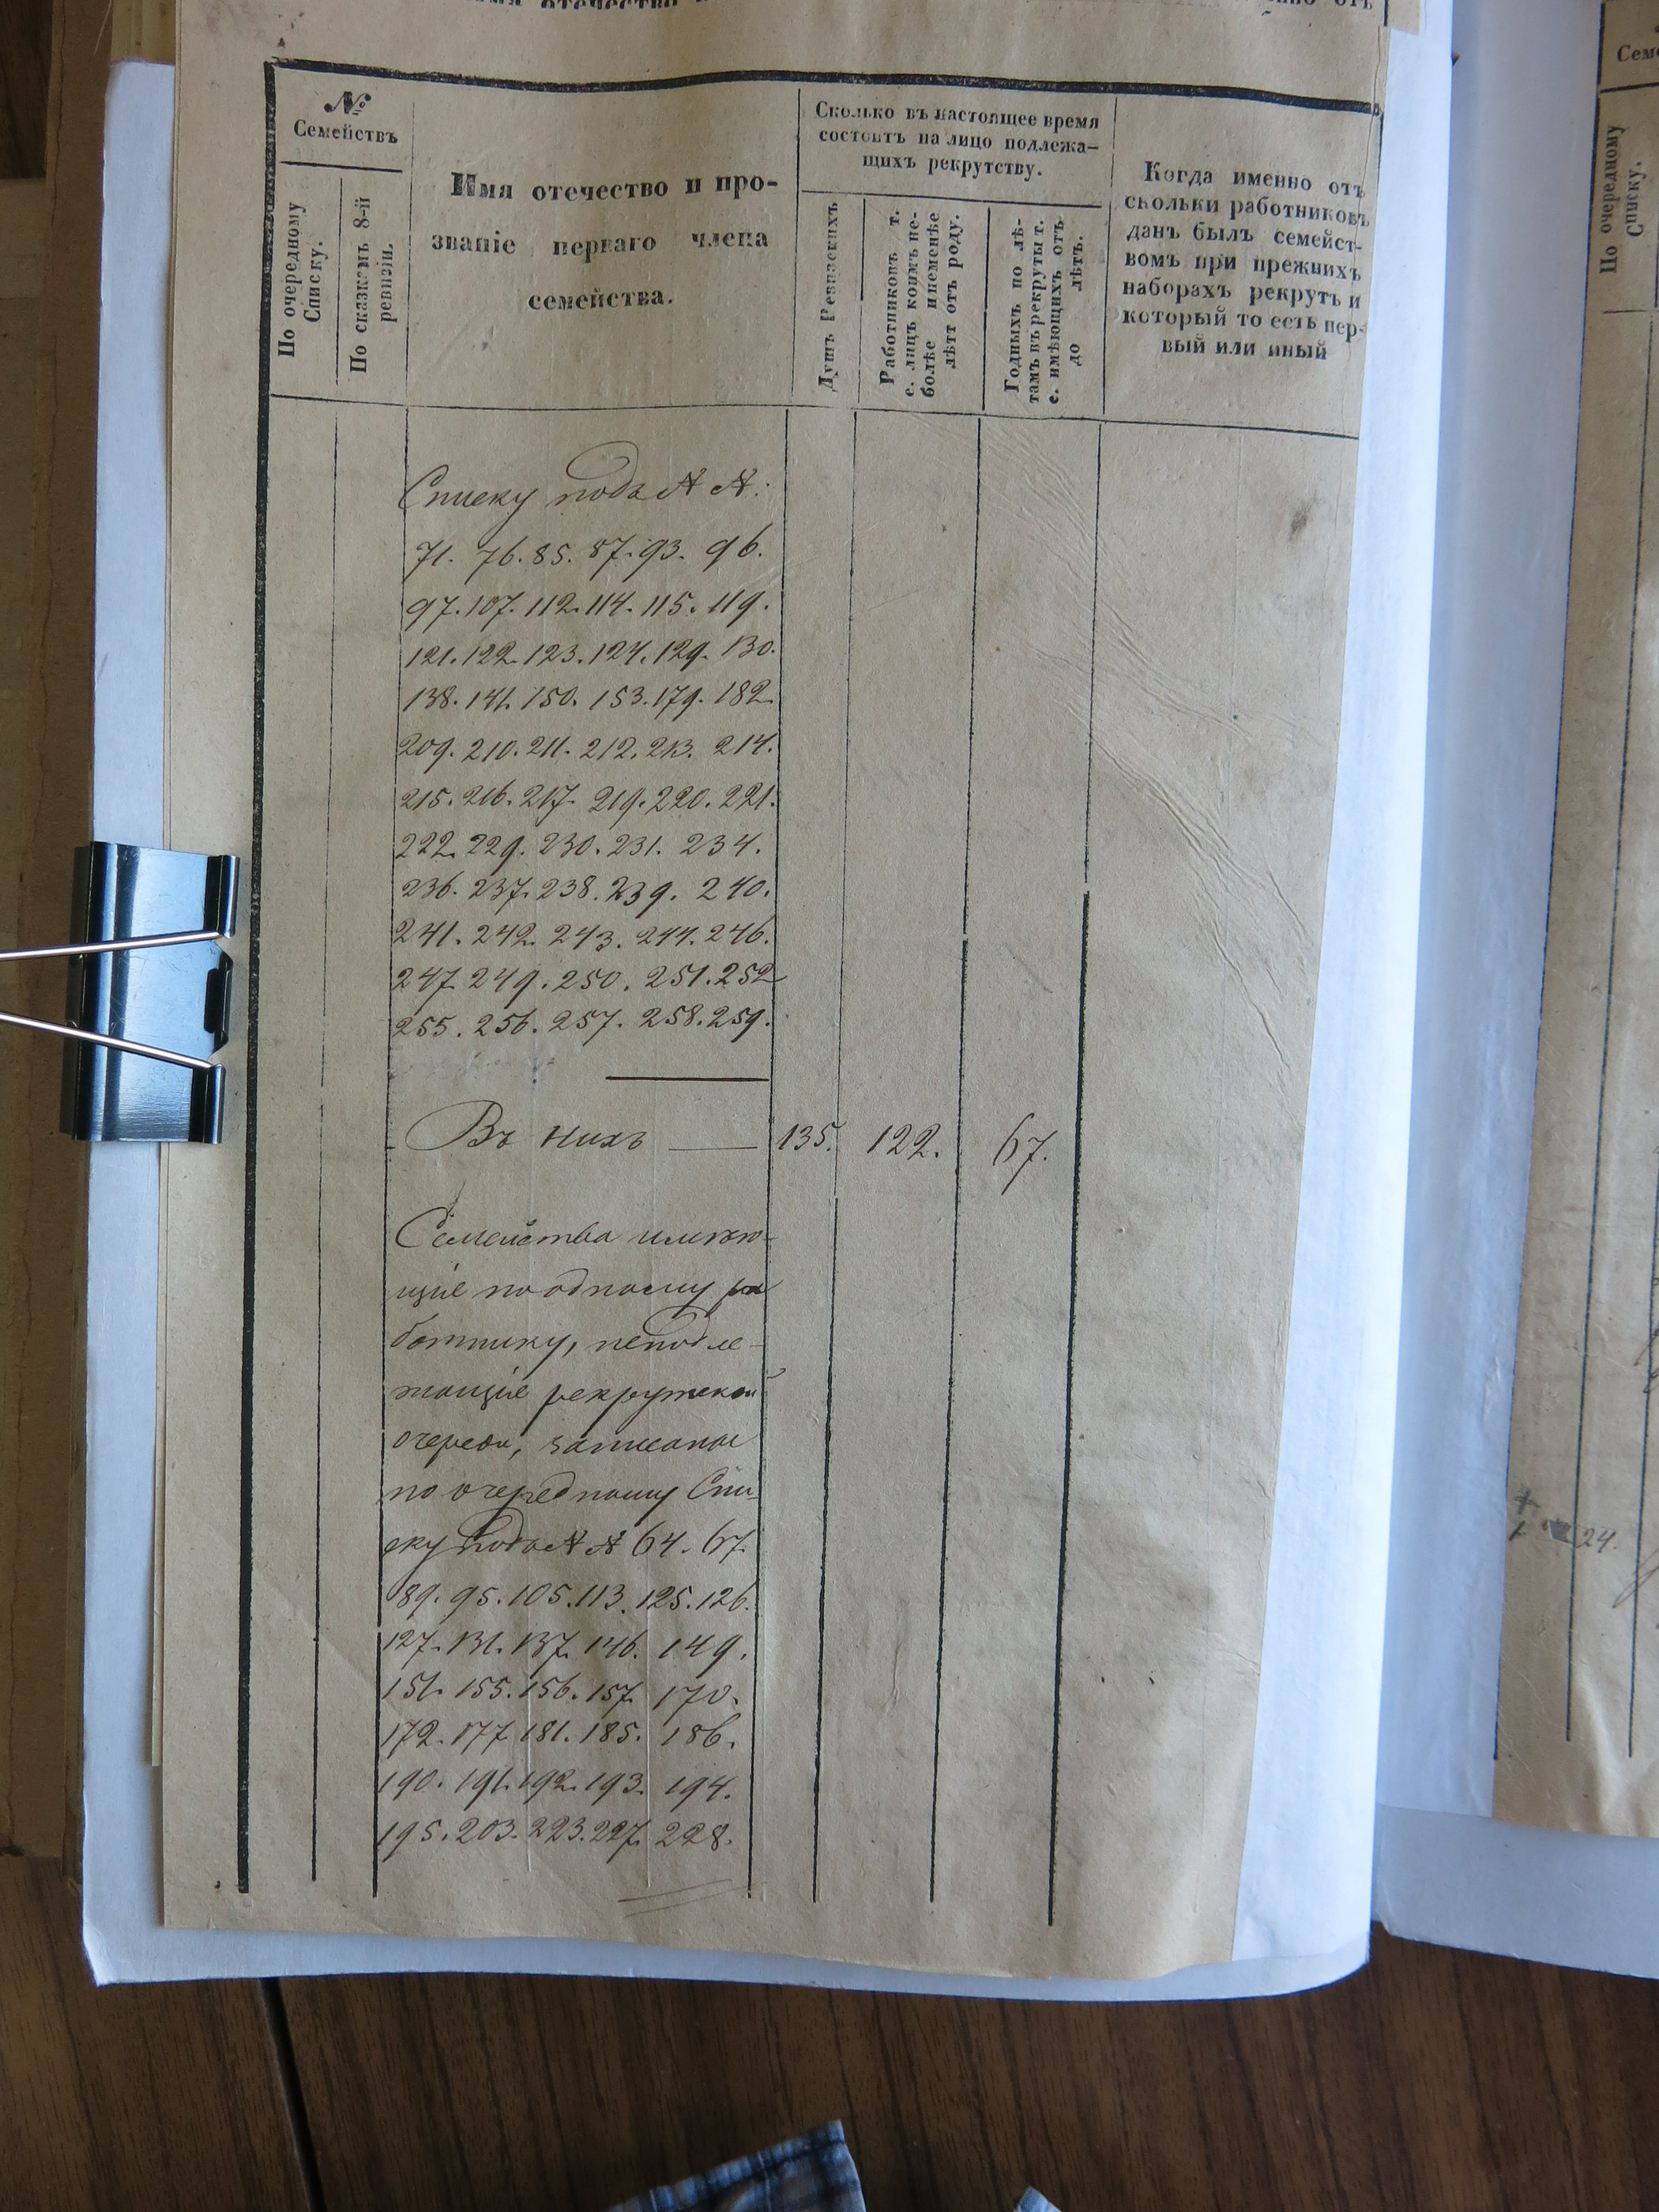 №
Семействъ
По очередному
Списку.
По сказкамъ 8-й
ревизіи.
Имя отечество и про-
званіе перваго члена
семейства.
Сколько въ настоящее время
состоитъ на лицо подлежа-
щихъ рекрутству.
Душъ Ревизскихъ
Работниковъ т.
е. лицъ коимъ не-
болѣе и неменѣе
лѣтъ отъ роду.
Годныхъ по лѣ-
тамъ въ рекруты т.
е. имѣющихъ отъ
до лѣтъ.
Когда именно отъ
скольки работниковъ
данъ былъ семейст-
вомъ при прежнихъ
наборахъ рекрутъ и
который то есть пер-
вый или иный
Списку подъ № №:
71. 76. 85. 87. 93. 96.
97. 107. 112. 114. 115. 119.
121. 122. 123. 124. 129. 130.
138. 141. 150. 153. 179. 182.
209. 210. 211. 212. 213. 214.
215. 216. 217. 219. 220. 221.
222. 229. 230. 231. 234.
236. 237. 238. 239. 240.
241. 242. 243. 244. 246.
247. 249. 250. 251. 252
255. 256. 257. 258. 259.
Въ нихъ — 135. 122. 67.
Семейства имѣю-
щіе по одному ра
ботнику, неподле-
жащіе рекрутской
очереди, записаные
по очередному Спи-
ску подъ № № 64. 67.
89. 95. 105. 113. 125. 126.
127. 131. 137. 146. 149.
151. 155. 156. 157. 170.
172. 177. 181. 185. 186.
190. 191. 192. 193. 194.
195. 203. 223. 227. 228.
По очередному
Списку.
24.